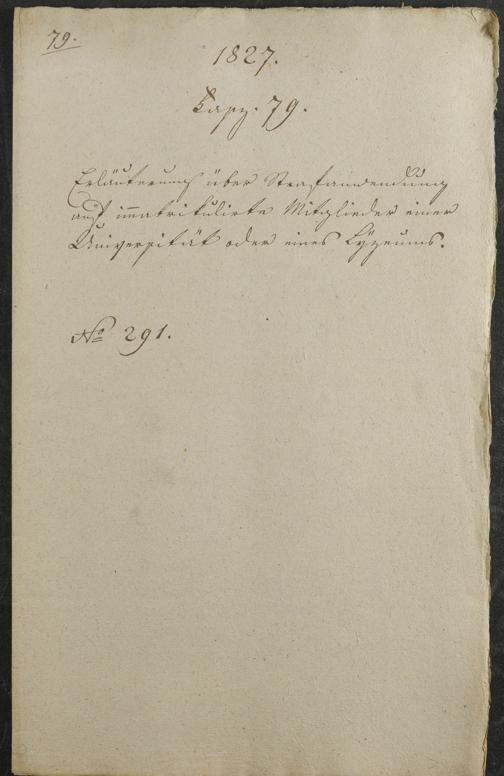 79.
1827.
Fasz. 79.
Erläuterung über Strafanwendung
auf immatrikulirte Mitglieder einer
Universität oder eines Lÿzeums.
No 291.